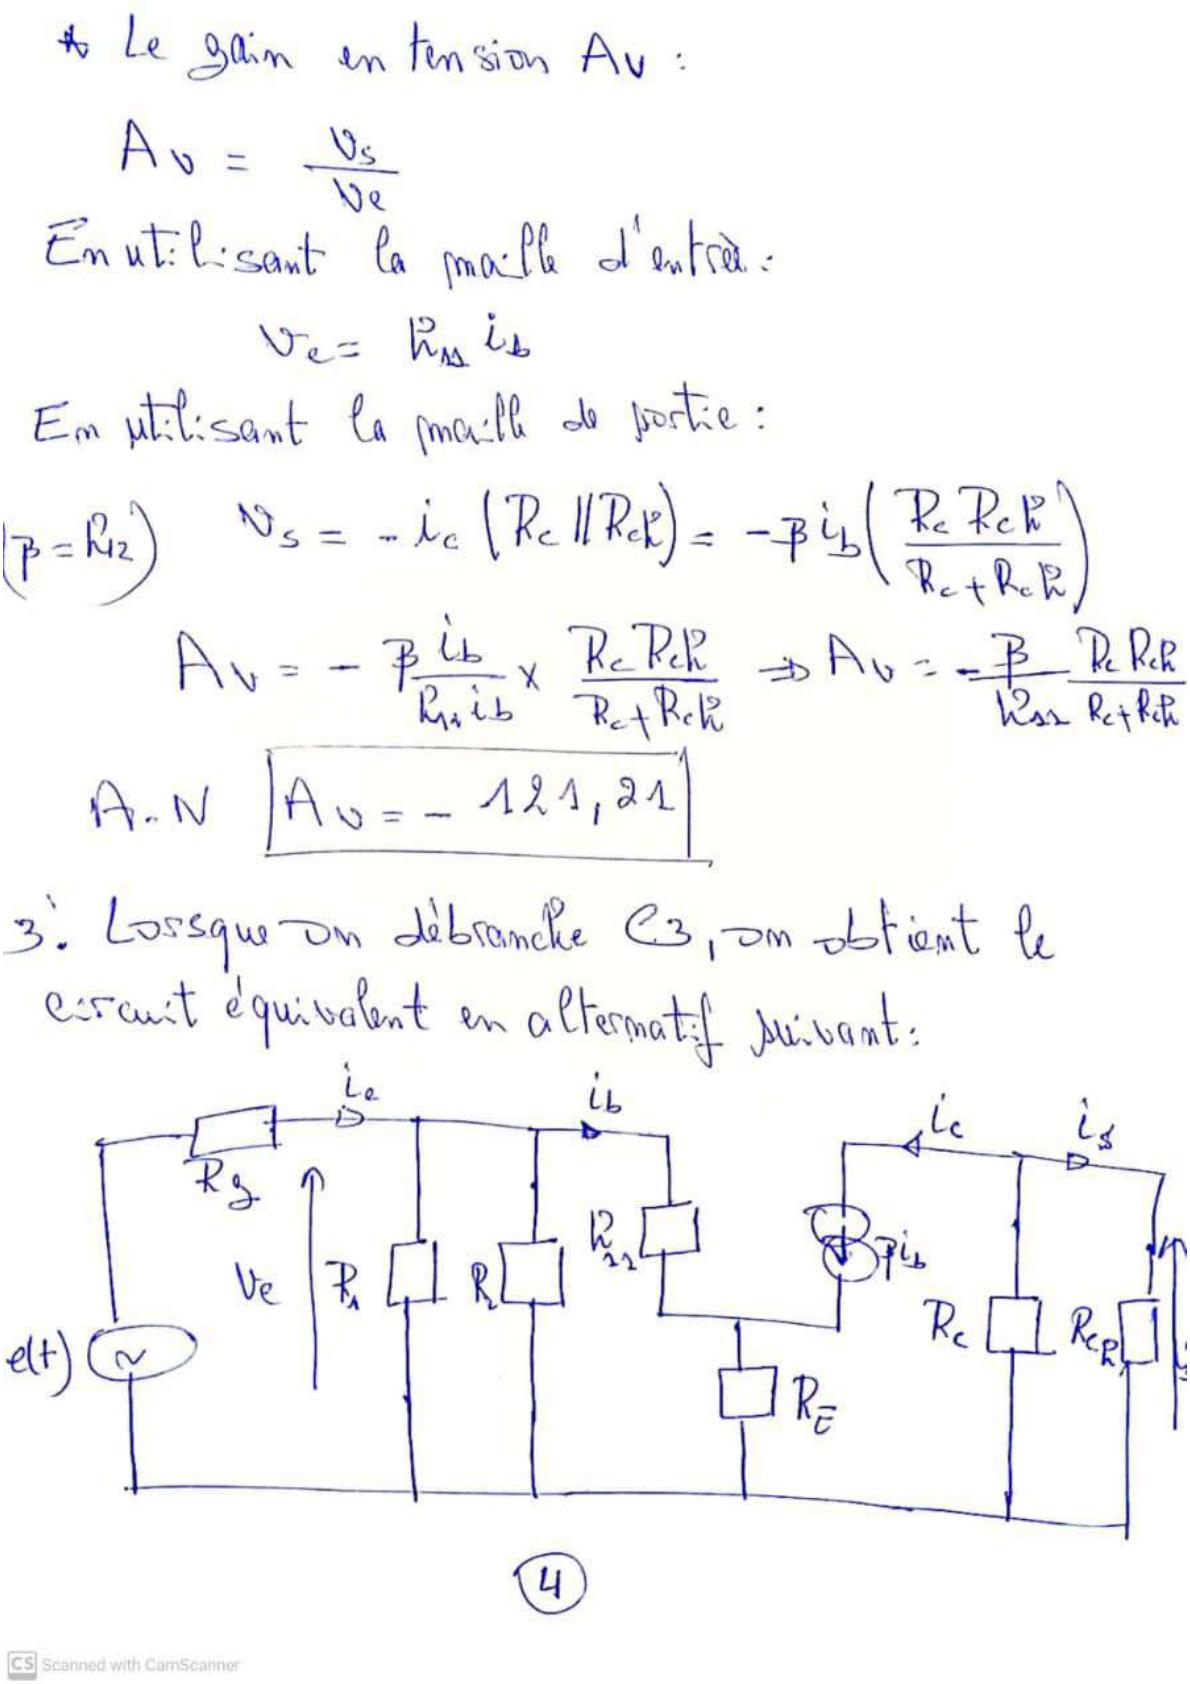 * Le gain en tension Av :
Av = vs / ve
En utilisant la maille d'entrèe :
ve = h11 ib
En utilisant la maille de sortie :
(β = h12) vs = - ic (Rc || Rch) = - β ib (Rc Rch / Rc + Rch)
Av = - β ib / h11 ib × Rc Rch / Rc + Rch ⇒ Av = - β / h11 Rc Rch / Rc + Rch
A.N Av = - 121,21
3. Lorsque on débranche C3, on obtient le
circuit équivalent en alternatif suivant :
ie ib ic is
Rg
Ve R1 R2 h11 βib
e(t) Rc Rch
RE
4
CS Scanned with CamScanner